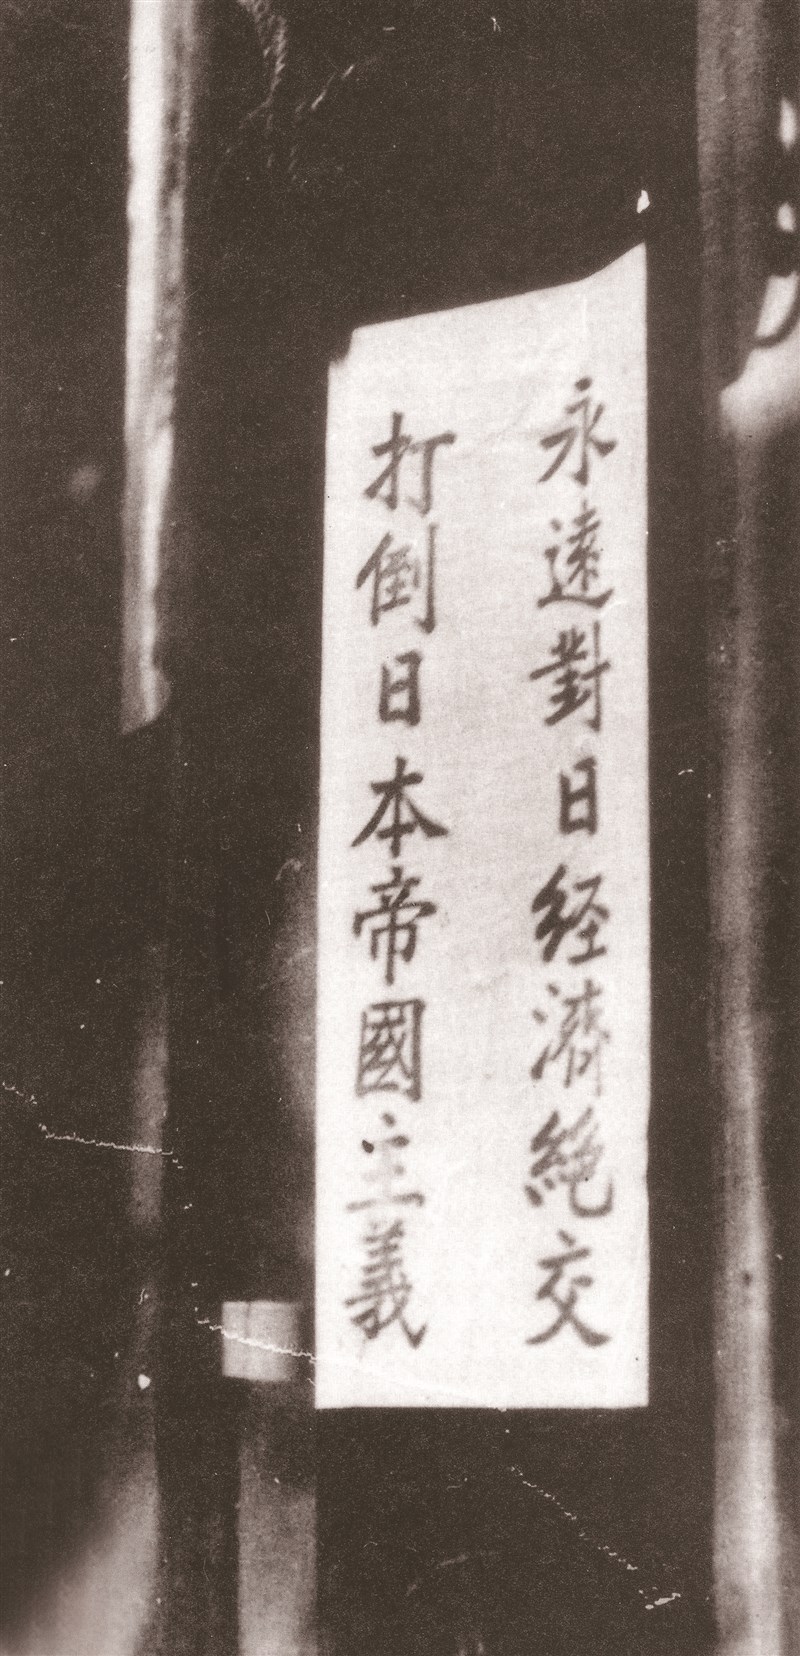 永遠對日经濟絶交
打倒日本帝國主義